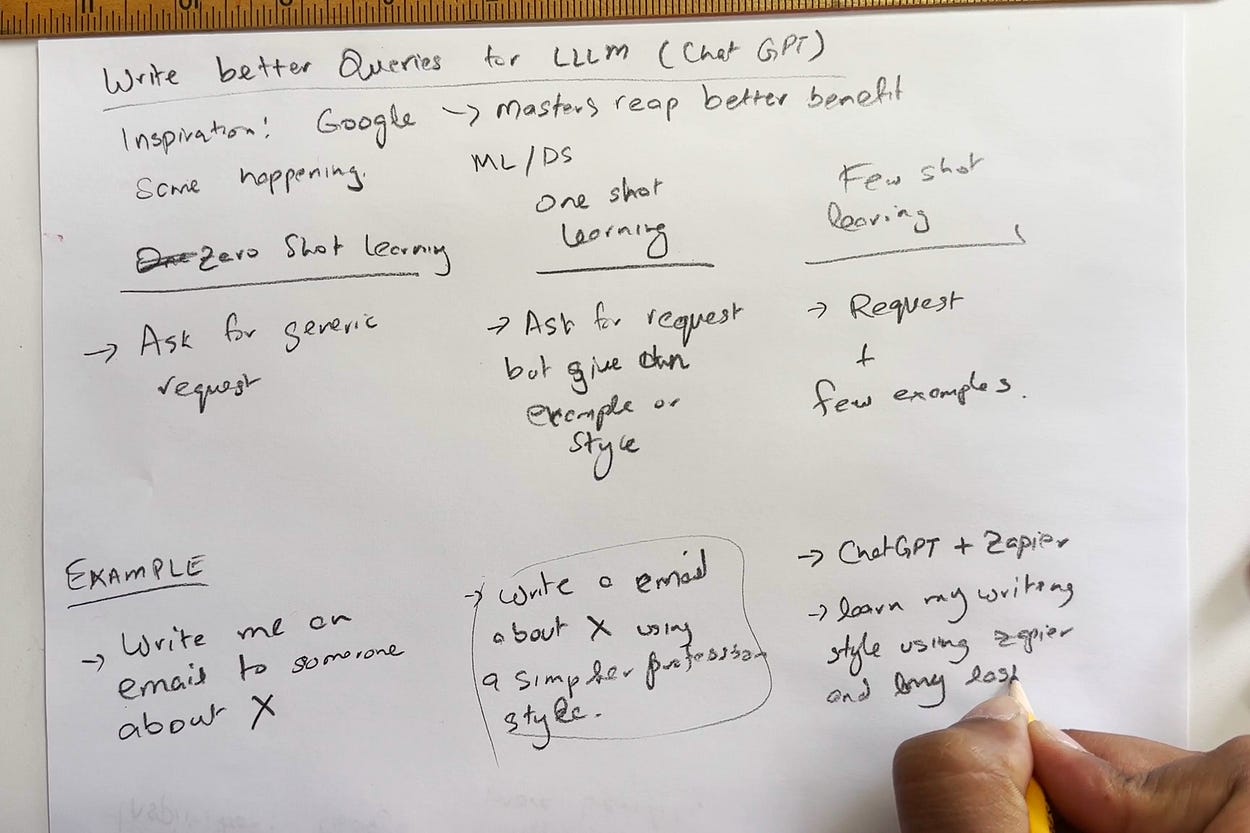 Write better Queries for LLLM (Chat GPT)
Inspiration: Google -> Masters reap better benefit
Same happening.
ML/DS
Zero Shot learning
-> Ask for generic
request
One shot
learning
-> Ask for request
but give an
example or
style
Few shot
learning
-> Request
+
few examples.
EXAMPLE
-> Write me an
email to someone
about X
-> Write a email
about X using
a simpler
style.
-> ChatGPT + Zapier
-> learn my writing
style using zapier
and my last